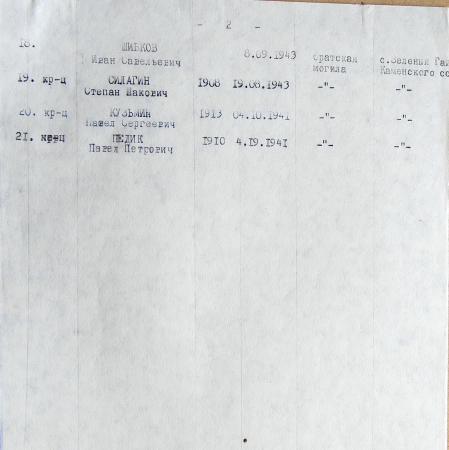 - 2 -
18. ШИБКОВ
Иван Савельевич 8.09.1943 братская могила с.Зеленый Гай Каменского
19. кр-ц СИЛАГИН 1908 19.08.1943 -"- -"-
Степан Иакович
20. кр-ц КУЗЬМИН 1913 04.10.1941 -"- -"-
Павел Сергеевич
21. кр-ц ПЕЛИК 1910 4.19.1941 -"- -"-
Павел Петрович